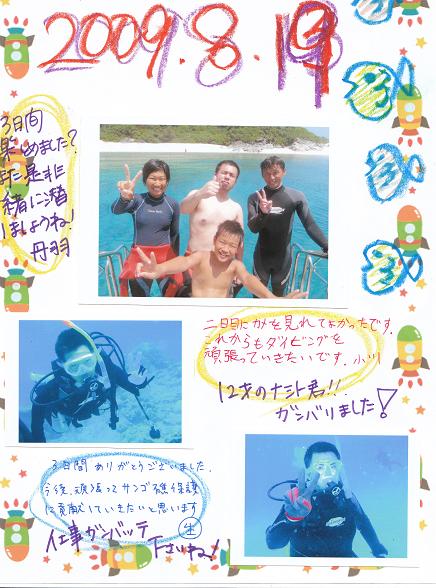 2009.8.19
3日間
楽しめました?
また是非
一緒に潜
りましょうね!
丹羽
二日目にカメを見れてよかったです。
これからもダイビングを
頑張っていきたいです。小川
12才のナオト君!!
ガンバリました!
3日間 ありがとうございました。
今後、頑張ってサンゴ礁保護
に貢献していきたいと思います
生
仕事ガンバッテ
下さいね!